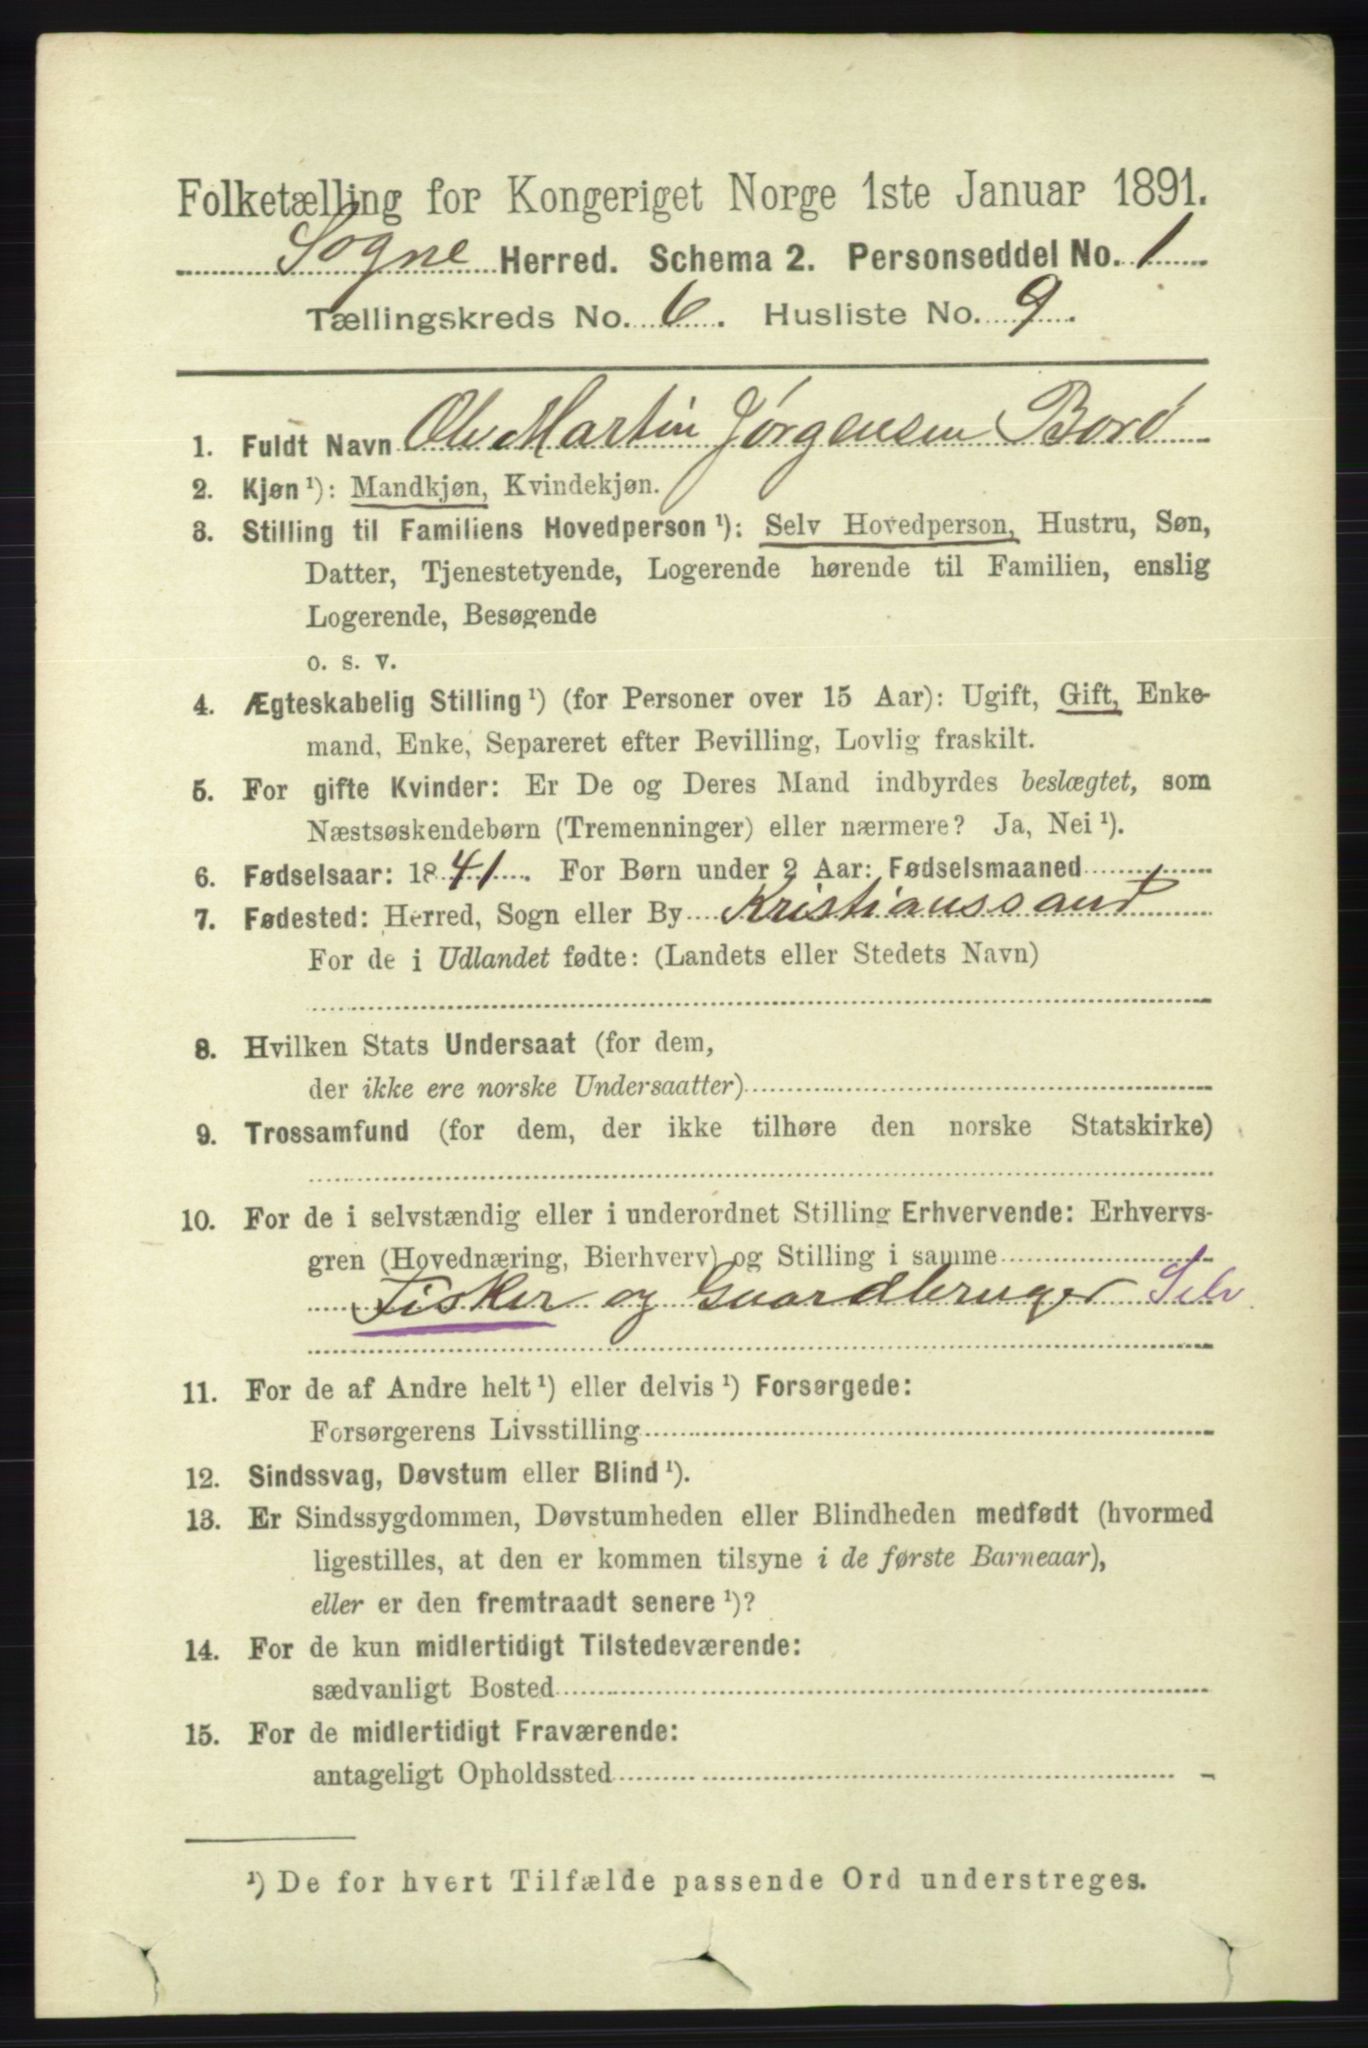 Folketælling for Kongeriget Norge 1ste Januar 1891.
Sogne Herred. Schema 2. Personseddel No. 1
Tællingskreds No. 6. Husliste No. 9.
1. Fuldt Navn Ole Martin Jørgensen Borø
2. Kjøn ¹): Mandkjøn, Kvindekjøn.
3. Stilling til Familiens Hovedperson ¹): Selv Hovedperson, Hustru, Søn,
Datter, Tjenestetyende, Logerende hørende til Familien, enslig
Logerende, Besøgende
o. s. v.
4. Ægteskabelig Stilling ¹) (for Personer over 15 Aar): Ugift, Gift, Enke-
mand, Enke, Separeret efter Bevilling, Lovlig fraskilt.
5. For gifte Kvinder: Er De og Deres Mand indbyrdes beslægtet, som
Næstsøskendebørn (Tremenninger) eller nærmere? Ja, Nei ¹).
6. Fødselsaar: 1841. For Børn under 2 Aar: Fødselsmaaned
7. Fødested: Herred, Sogn eller By Kristianssand
For de i Udlandet fødte: (Landets eller Stedets Navn)
8. Hvilken Stats Undersaat (for dem,
der ikke ere norske Undersaatter)
9. Trossamfund (for dem, der ikke tilhøre den norske Statskirke)
10. For de i selvstændig eller i underordnet Stilling Erhvervende: Erhvervs-
gren (Hovednæring, Bierhverv) og Stilling i samme
Fisker og Gaardbruger Selv
11. For de af Andre helt ¹) eller delvis ¹) Forsørgede:
Forsørgerens Livsstilling
12. Sindssvag, Døvstum eller Blind ¹).
13. Er Sindssygdommen, Døvstumheden eller Blindheden medfødt (hvormed
ligestilles, at den er kommen tilsyne i de første Barneaar),
eller er den fremtraadt senere ¹)?
14. For de kun midlertidigt Tilstedeværende:
sædvanligt Bosted
15. For de midlertidigt Fraværende:
antageligt Opholdssted
¹) De for hvert Tilfælde passende Ord understreges.